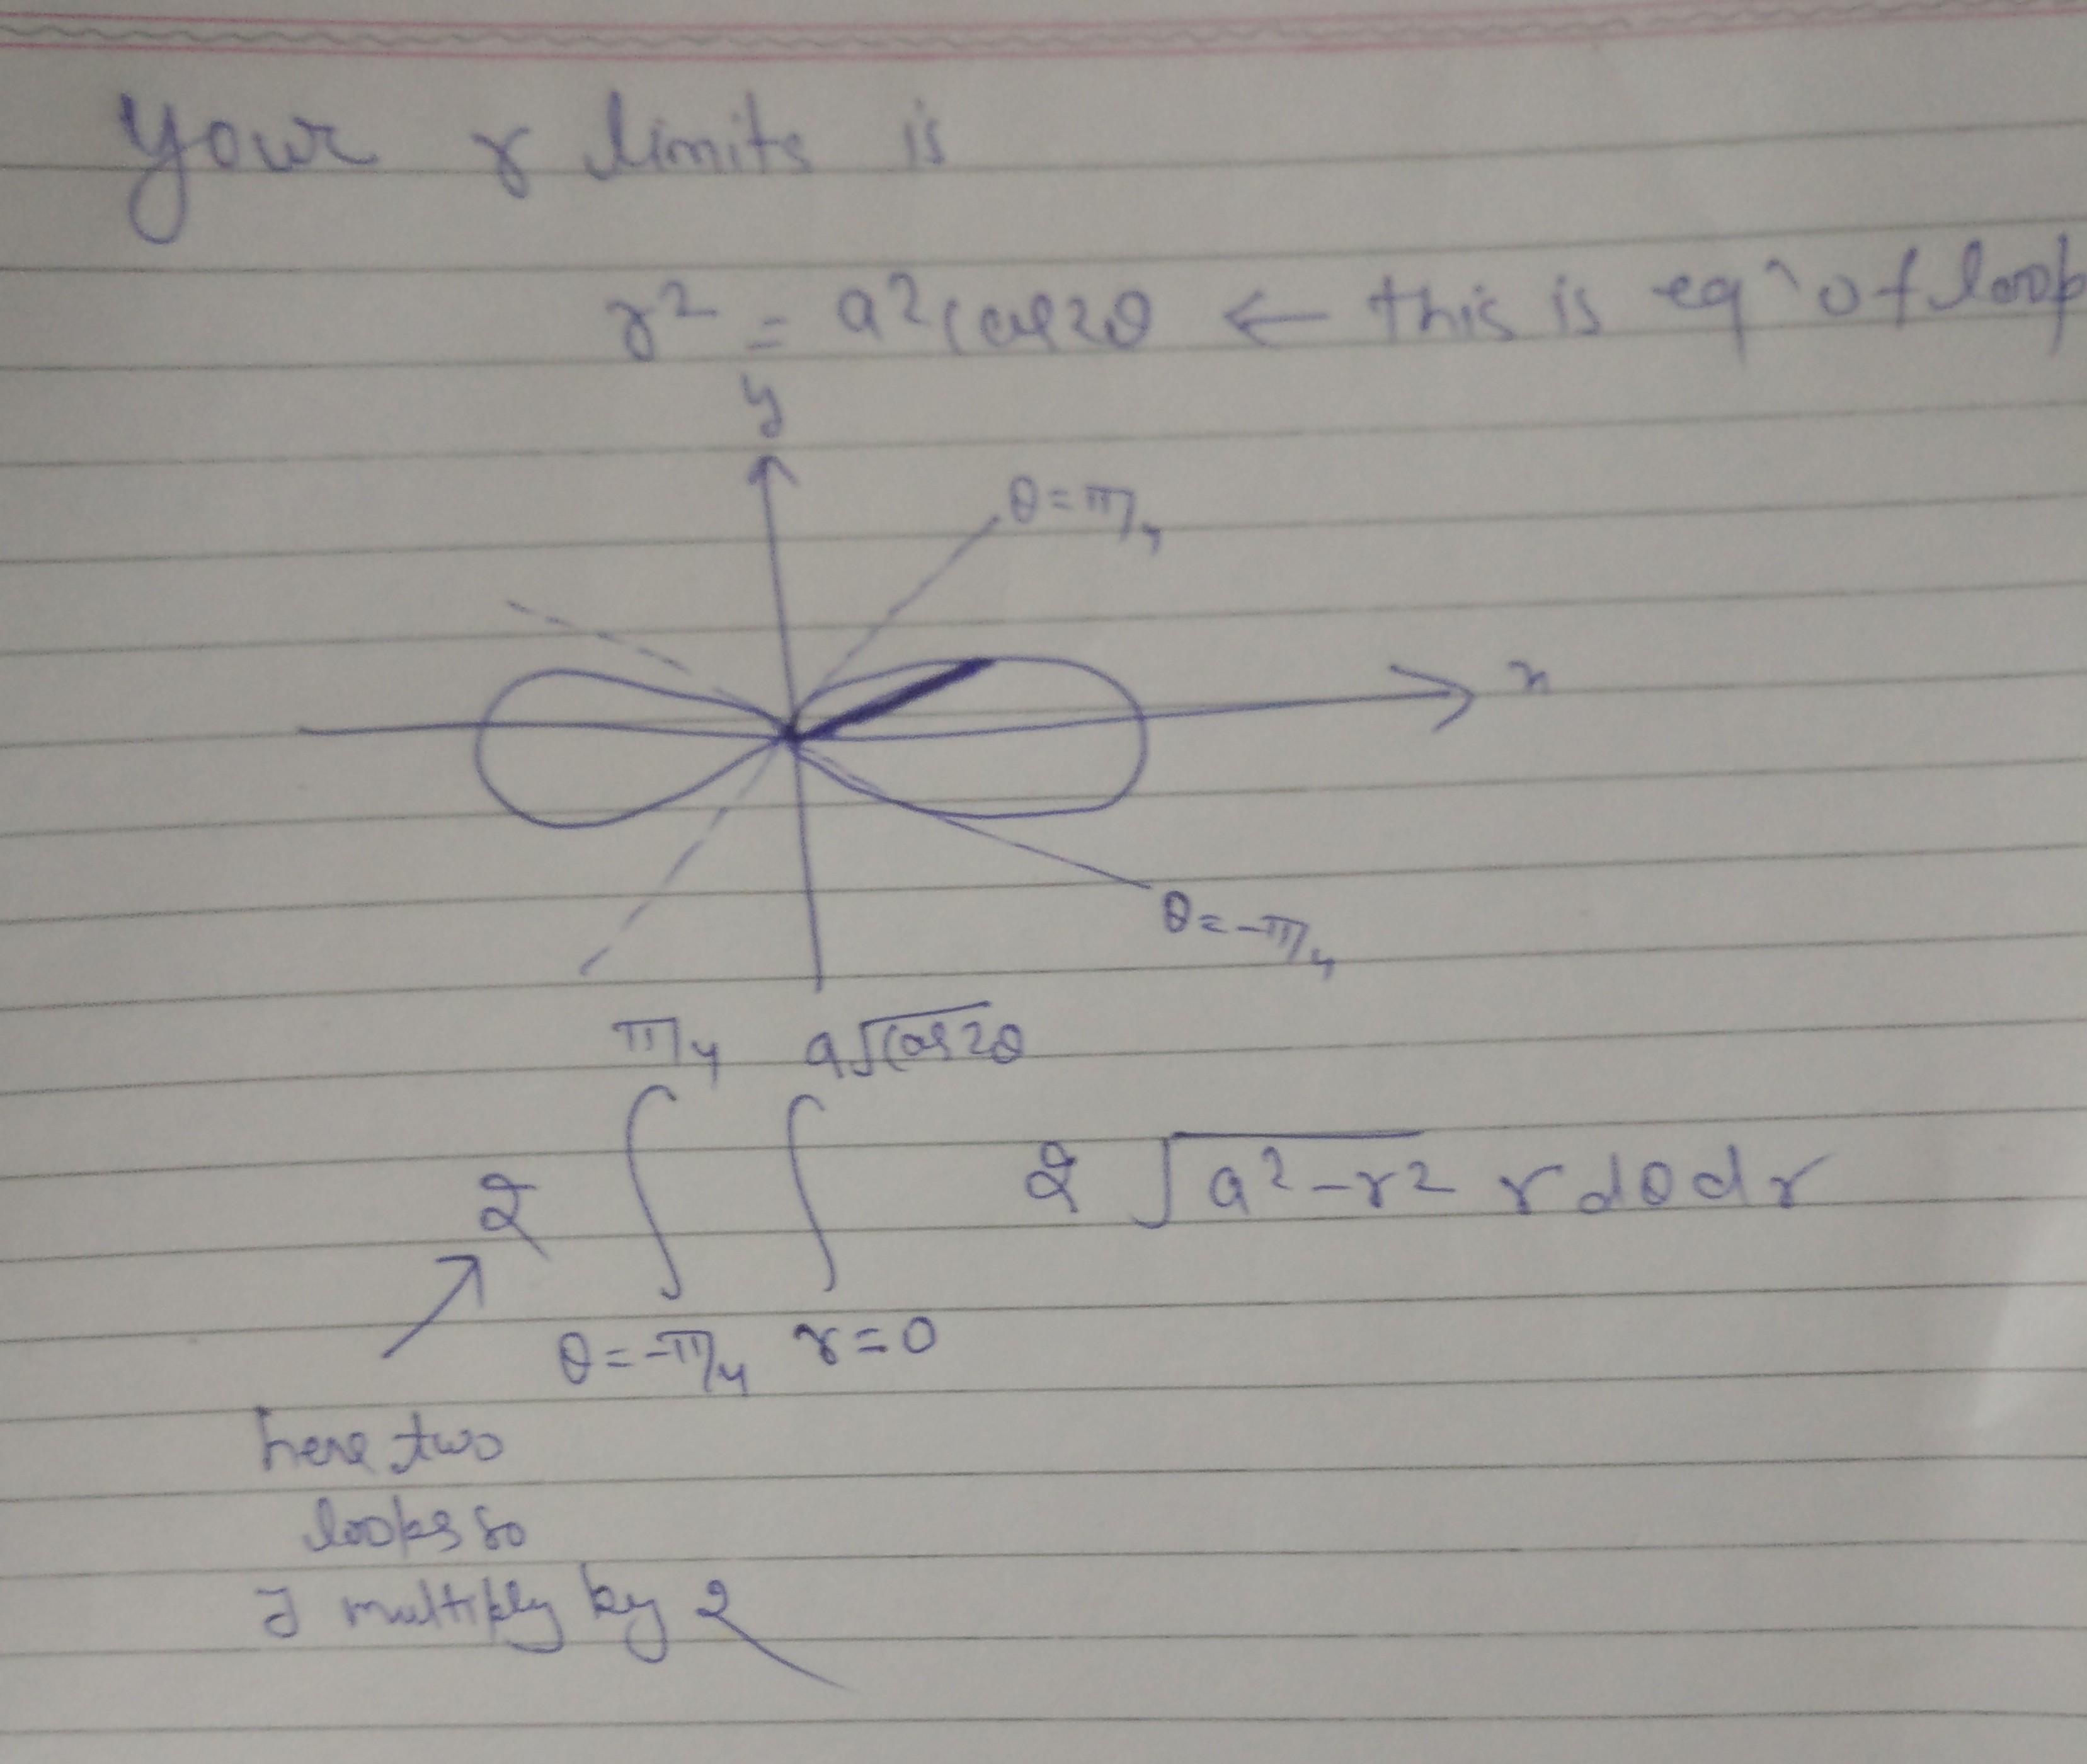 your r limits is
r² = a²cos2θ ← this is eqⁿ of loop
y
θ=π/4
x
θ=-π/4
π/4 a√cos2θ
2 ∫ ∫ 2 √a²-r² r dθ dr
θ=-π/4 r=0
here two
loops so
I multiply by 2